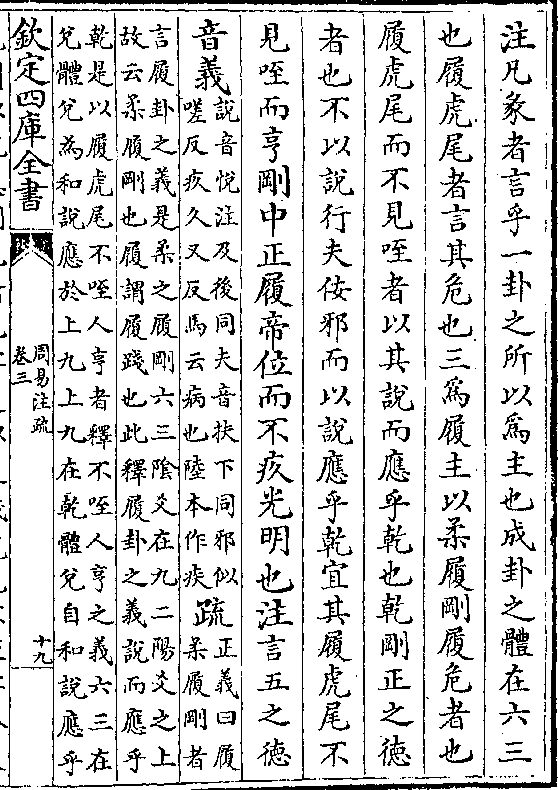 注凡彖者言乎一卦之所以爲主也成卦之體在六三
也履虎尾者言其危也三爲履主以柔履剛履危者也
履虎尾而不見咥者以其說而應乎乾也乾剛正之德
者也不以說行夫佞邪而以說應乎乾宜其履虎尾不
見咥而亨剛中正履帝位而不疚光明也注言五之德
音義說音悅注及後同夫音扶下同邪似
嗟反疚久又反馬云病也陸本作疾
疏正義曰履
柔履剛者
言履卦之義是柔之履剛六三陰爻在九二陽爻之上
故云柔履剛也履謂履踐也此釋履卦之義說而應乎
乾是以履虎尾不咥人亨者釋不咥人亨之義六三在
兌體兌為和說應於上九上九在乾體兌自和說應乎
欽定四庫全書
周易注疏
卷三
十九